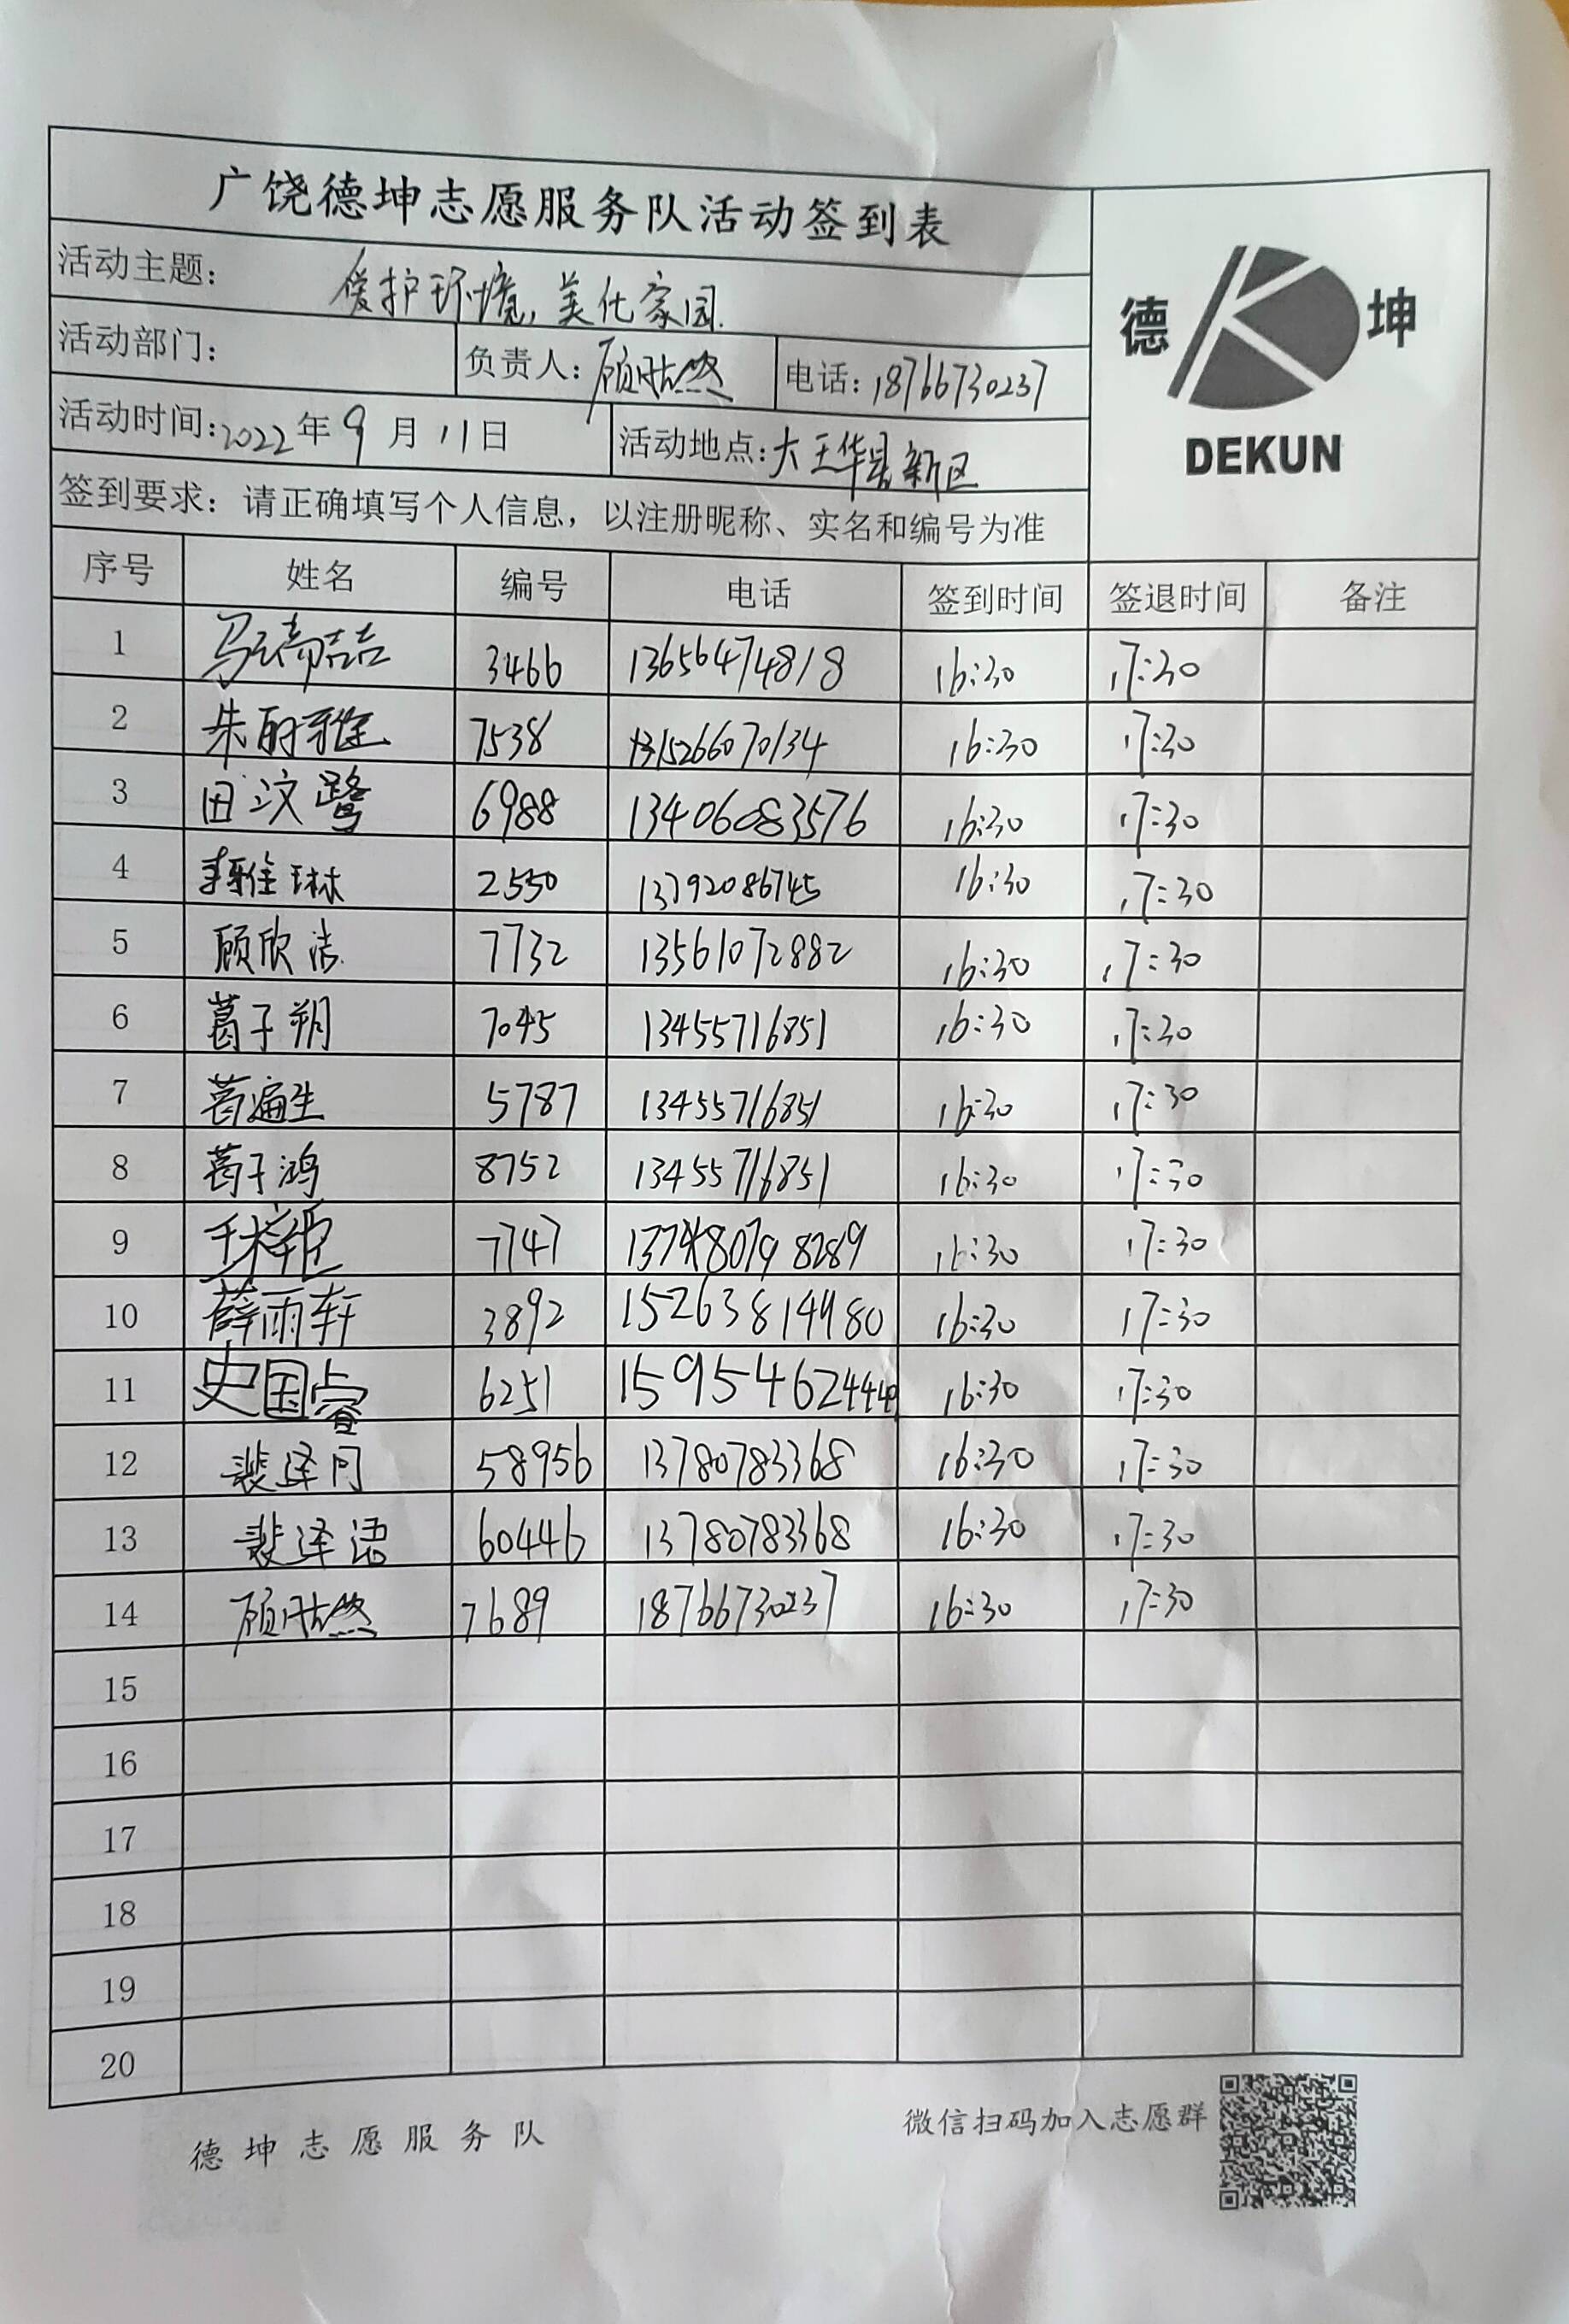 广饶德坤志愿服务队活动签到表
活动主题: 爱护环境,美化家园.
德 坤
DEKUN
活动部门: 负责人: 顾然 电话: 18766730237
活动时间: 2022年9月11日 活动地点: 大王华新区
签到要求: 请正确填写个人信息, 以注册昵称、实名和编号为准
序号 姓名 编号 电话 签到时间 签退时间 备注
1 3466 13656474818 16:30 17:30
2 朱雅 7538 15266070134 16:30 17:30
3 田汶鹭 6988 13406083576 16:30 17:30
4 李雅琳 2550 13792086745 16:30 17:30
5 顾欣洁 7732 13561072882 16:30 17:30
6 葛子朔 7045 13455716851 16:30 17:30
7 葛遍生 5787 13455716851 16:30 17:30
8 葛子鸿 8752 13455716851 16:30 17:30
9 7747 16:30 17:30
10 薛雨轩 3892 15263814980 16:30 17:30
11 史国睿 6251 16:30 17:30
12 裴泽 58956 13780783368 16:30 17:30
13 裴泽语 60446 13780783368 16:30 17:30
14 顾然 7689 18766730237 16:30 17:30
15
16
17
18
19
20
德坤志愿服务队 微信扫码加入志愿群